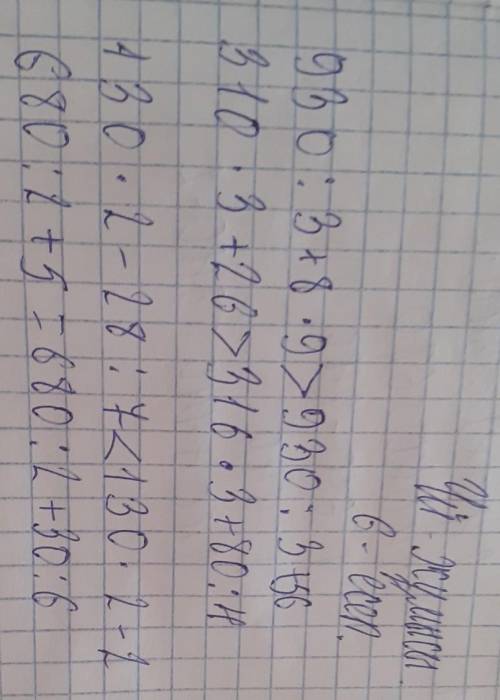 Үй жұмысы
6 - есеп.
930 : 3 + 8 · 9 > 930 : 3 + 56
310 · 3 + 26 > 316 · 3 + 80 : 4
130 · 2 - 28 : 7 < 130 · 2 - 2
680 : 2 + 5 = 680 : 2 + 30 : 6